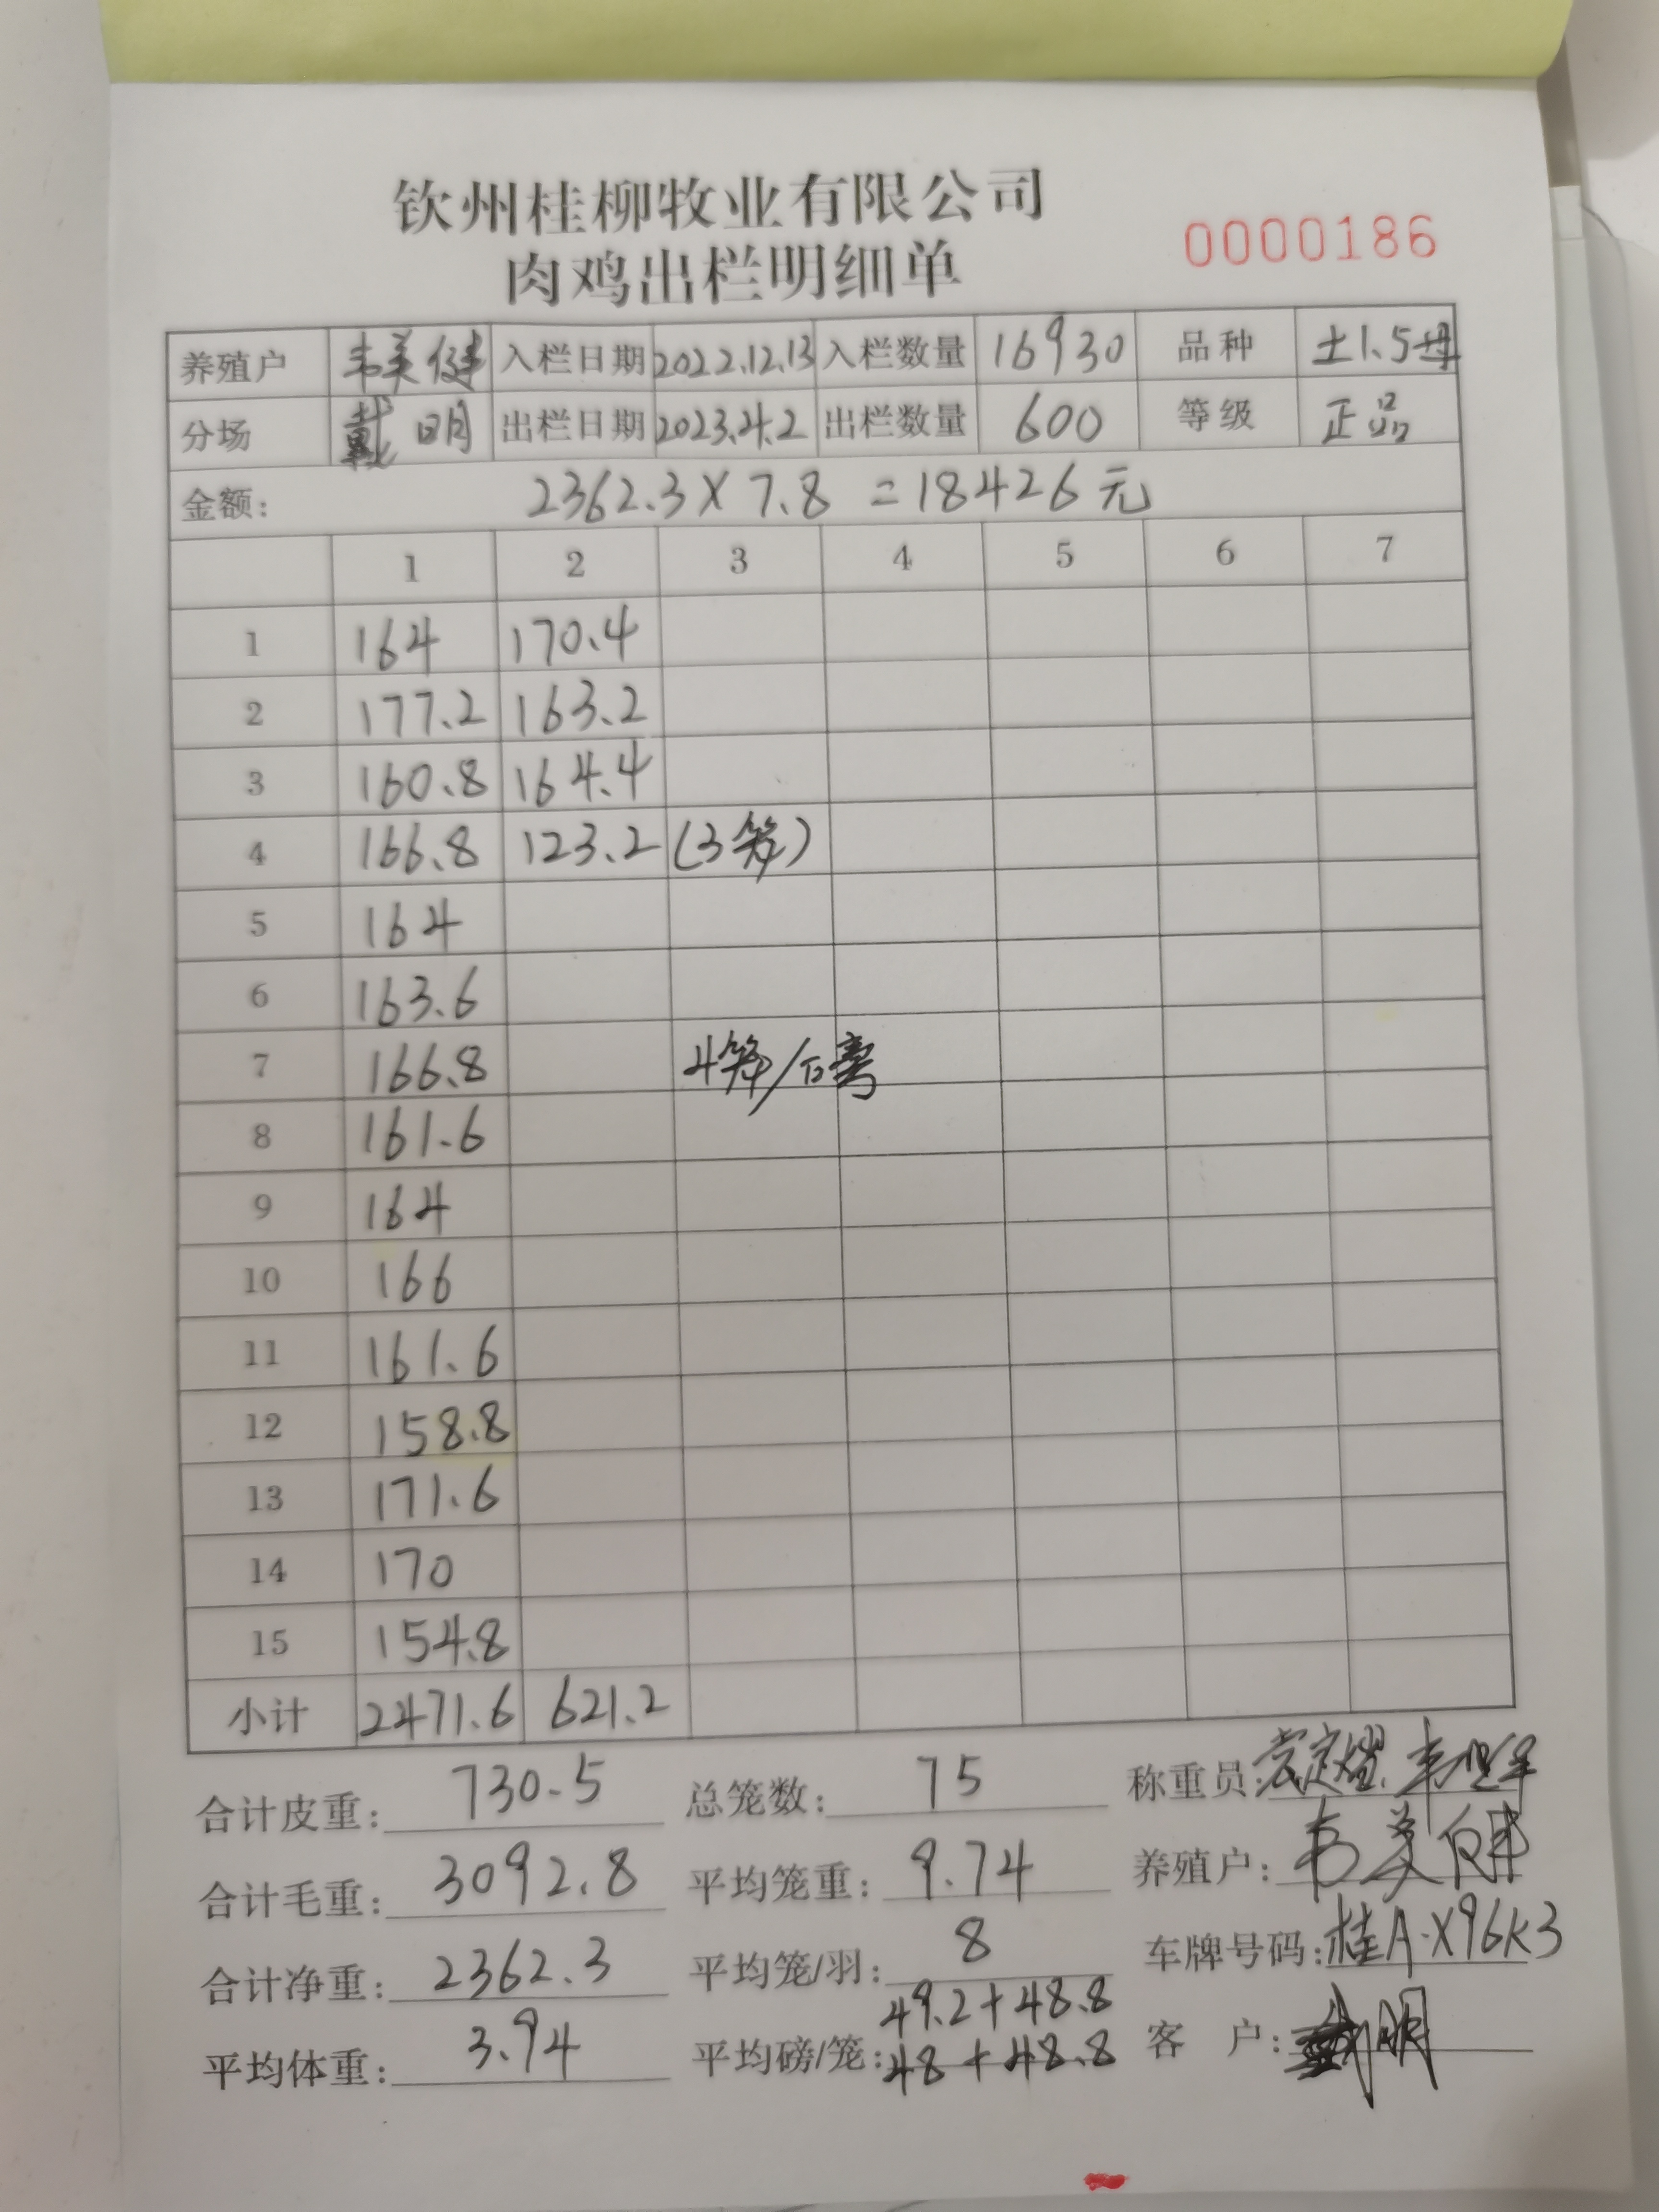 钦州桂柳牧业有限公司
肉鸡出栏明细单
0000186
养殖户 韦美健 入栏日期 2022.12.13 入栏数量 16930 品种 土1.5母
分场 戴明 出栏日期 2023.4.2 出栏数量 600 等级 正品
金额: 2362.3×7.8=18426元
1 2 3 4 5 6 7
1 164 170.4
2 177.2 163.2
3 160.8 164.4
4 166.8 123.2 (3笼)
5 164
6 163.6
7 166.8 4笼/
8 161.6
9 164
10 166
11 161.6
12 158.8
13 171.6
14 170
15 154.8
小计 2471.6 621.2
合计皮重: 730.5 总笼数: 75 称重员:
合计毛重: 3092.8 平均笼重: 9.74 养殖户: 韦美健
合计净重: 2362.3 平均笼/羽: 8 车牌号码: 桂A·X96K3
49.2+48.8
平均体重: 3.94 平均磅/笼: 48+48.8 客户: 戴明